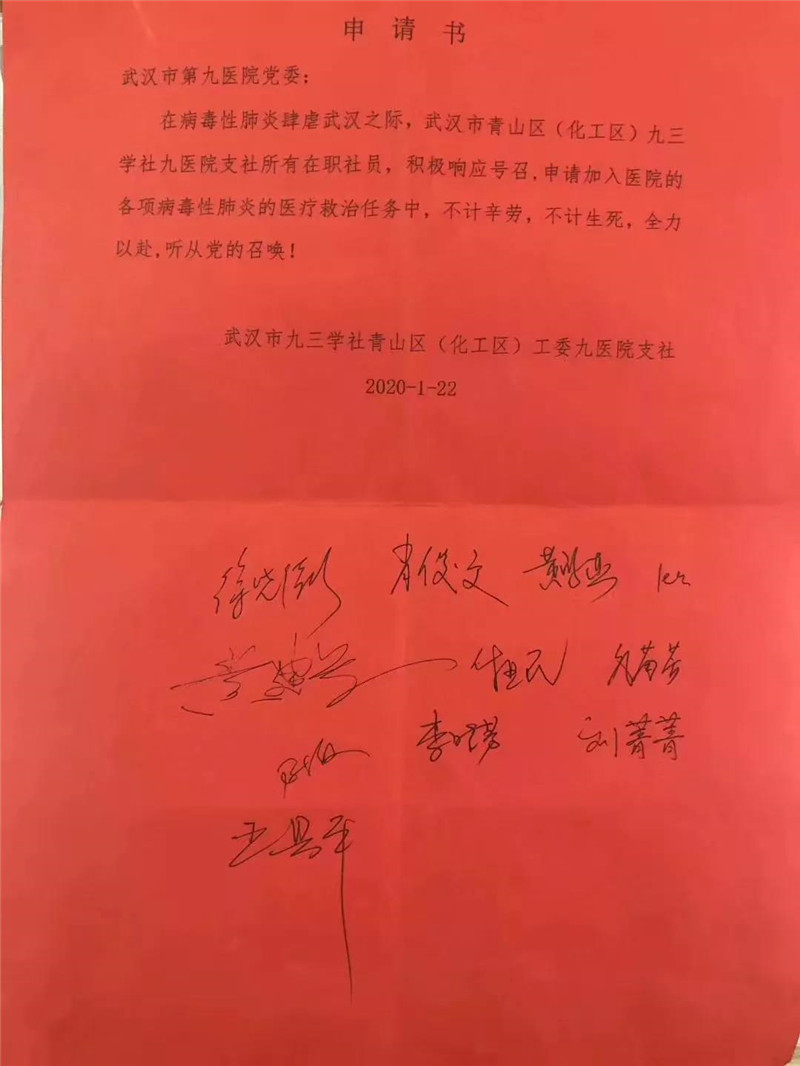 申请书
武汉市第九医院党委：
在病毒性肺炎肆虐武汉之际，武汉市青山区（化工区）九三
学社九医院支社所有在职社员，积极响应号召,申请加入医院的
各项病毒性肺炎的医疗救治任务中，不计辛劳，不计生死，全力
以赴,听从党的召唤！
武汉市九三学社青山区（化工区）工委九医院支社
2020-1-22
肖俊文
李
刘菁菁
王昌平